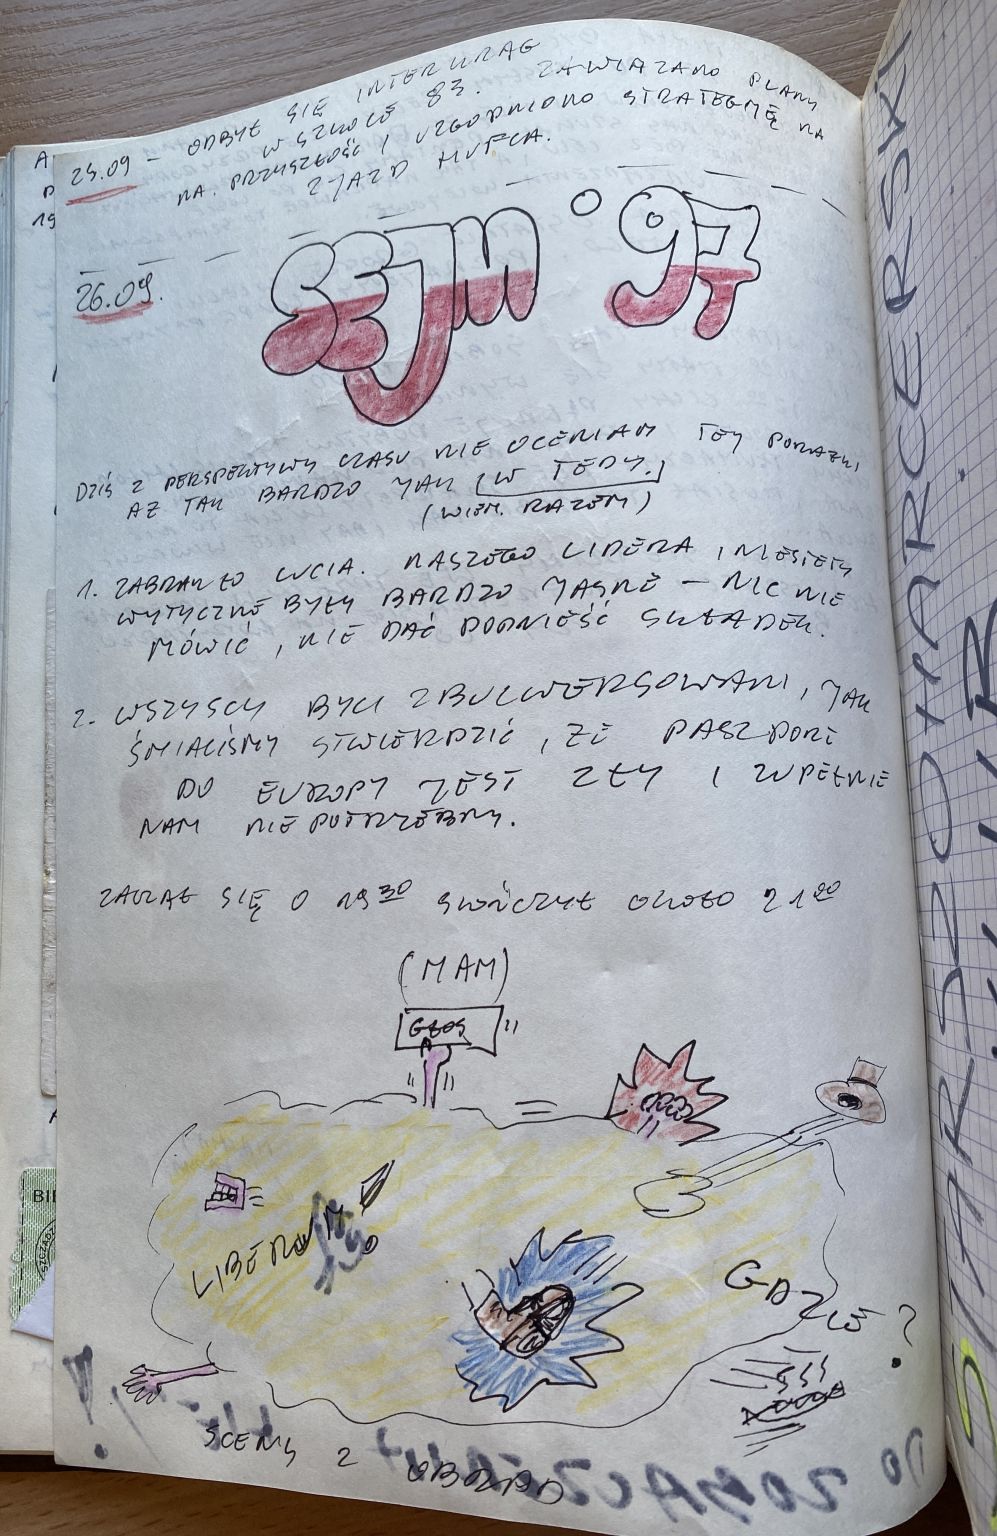 25.09 – ODBYŁ SIĘ INTERKRĄG
W SZKOLE 83. ZAWIĄZANO PLANY
NA PRZYSZŁOŚĆ I UZGODNIONO STRATEGIĘ NA
ZJAZD HUFCA.
26.09.
SEJM '97
DZIŚ Z PERSPEKTYWY CZASU NIE OCENIAM TEJ PORAŻKI
AŻ TAK BARDZO JAK (W TEDY.)
(WIEM. RAZEM)
1. ZABRAKŁO LUCIA. NASZEGO LIDERA, NIESTETY
WYTYCZNE BYŁY BARDZO JASNE – NIC NIE
MÓWIĆ, NIE DAĆ PODNIEŚĆ SKŁADEK.
2. WSZYSCY BYLI ZBULWERSOWANI, JAK
ŚMIALIŚMY STWIERDZIĆ, ŻE PASZPORT
DO EUROPY JEST ZŁY I ZUPEŁNIE
NAM NIEPOTRZEBNY.
ZACZĄŁ SIĘ O 19 30 SKOŃCZYŁ OKOŁO 21 00
(MAM)
GŁOS
LIBERUM
GDZIE?
SCENY Z OBRAD
STARSZOHARCERSKI
BI